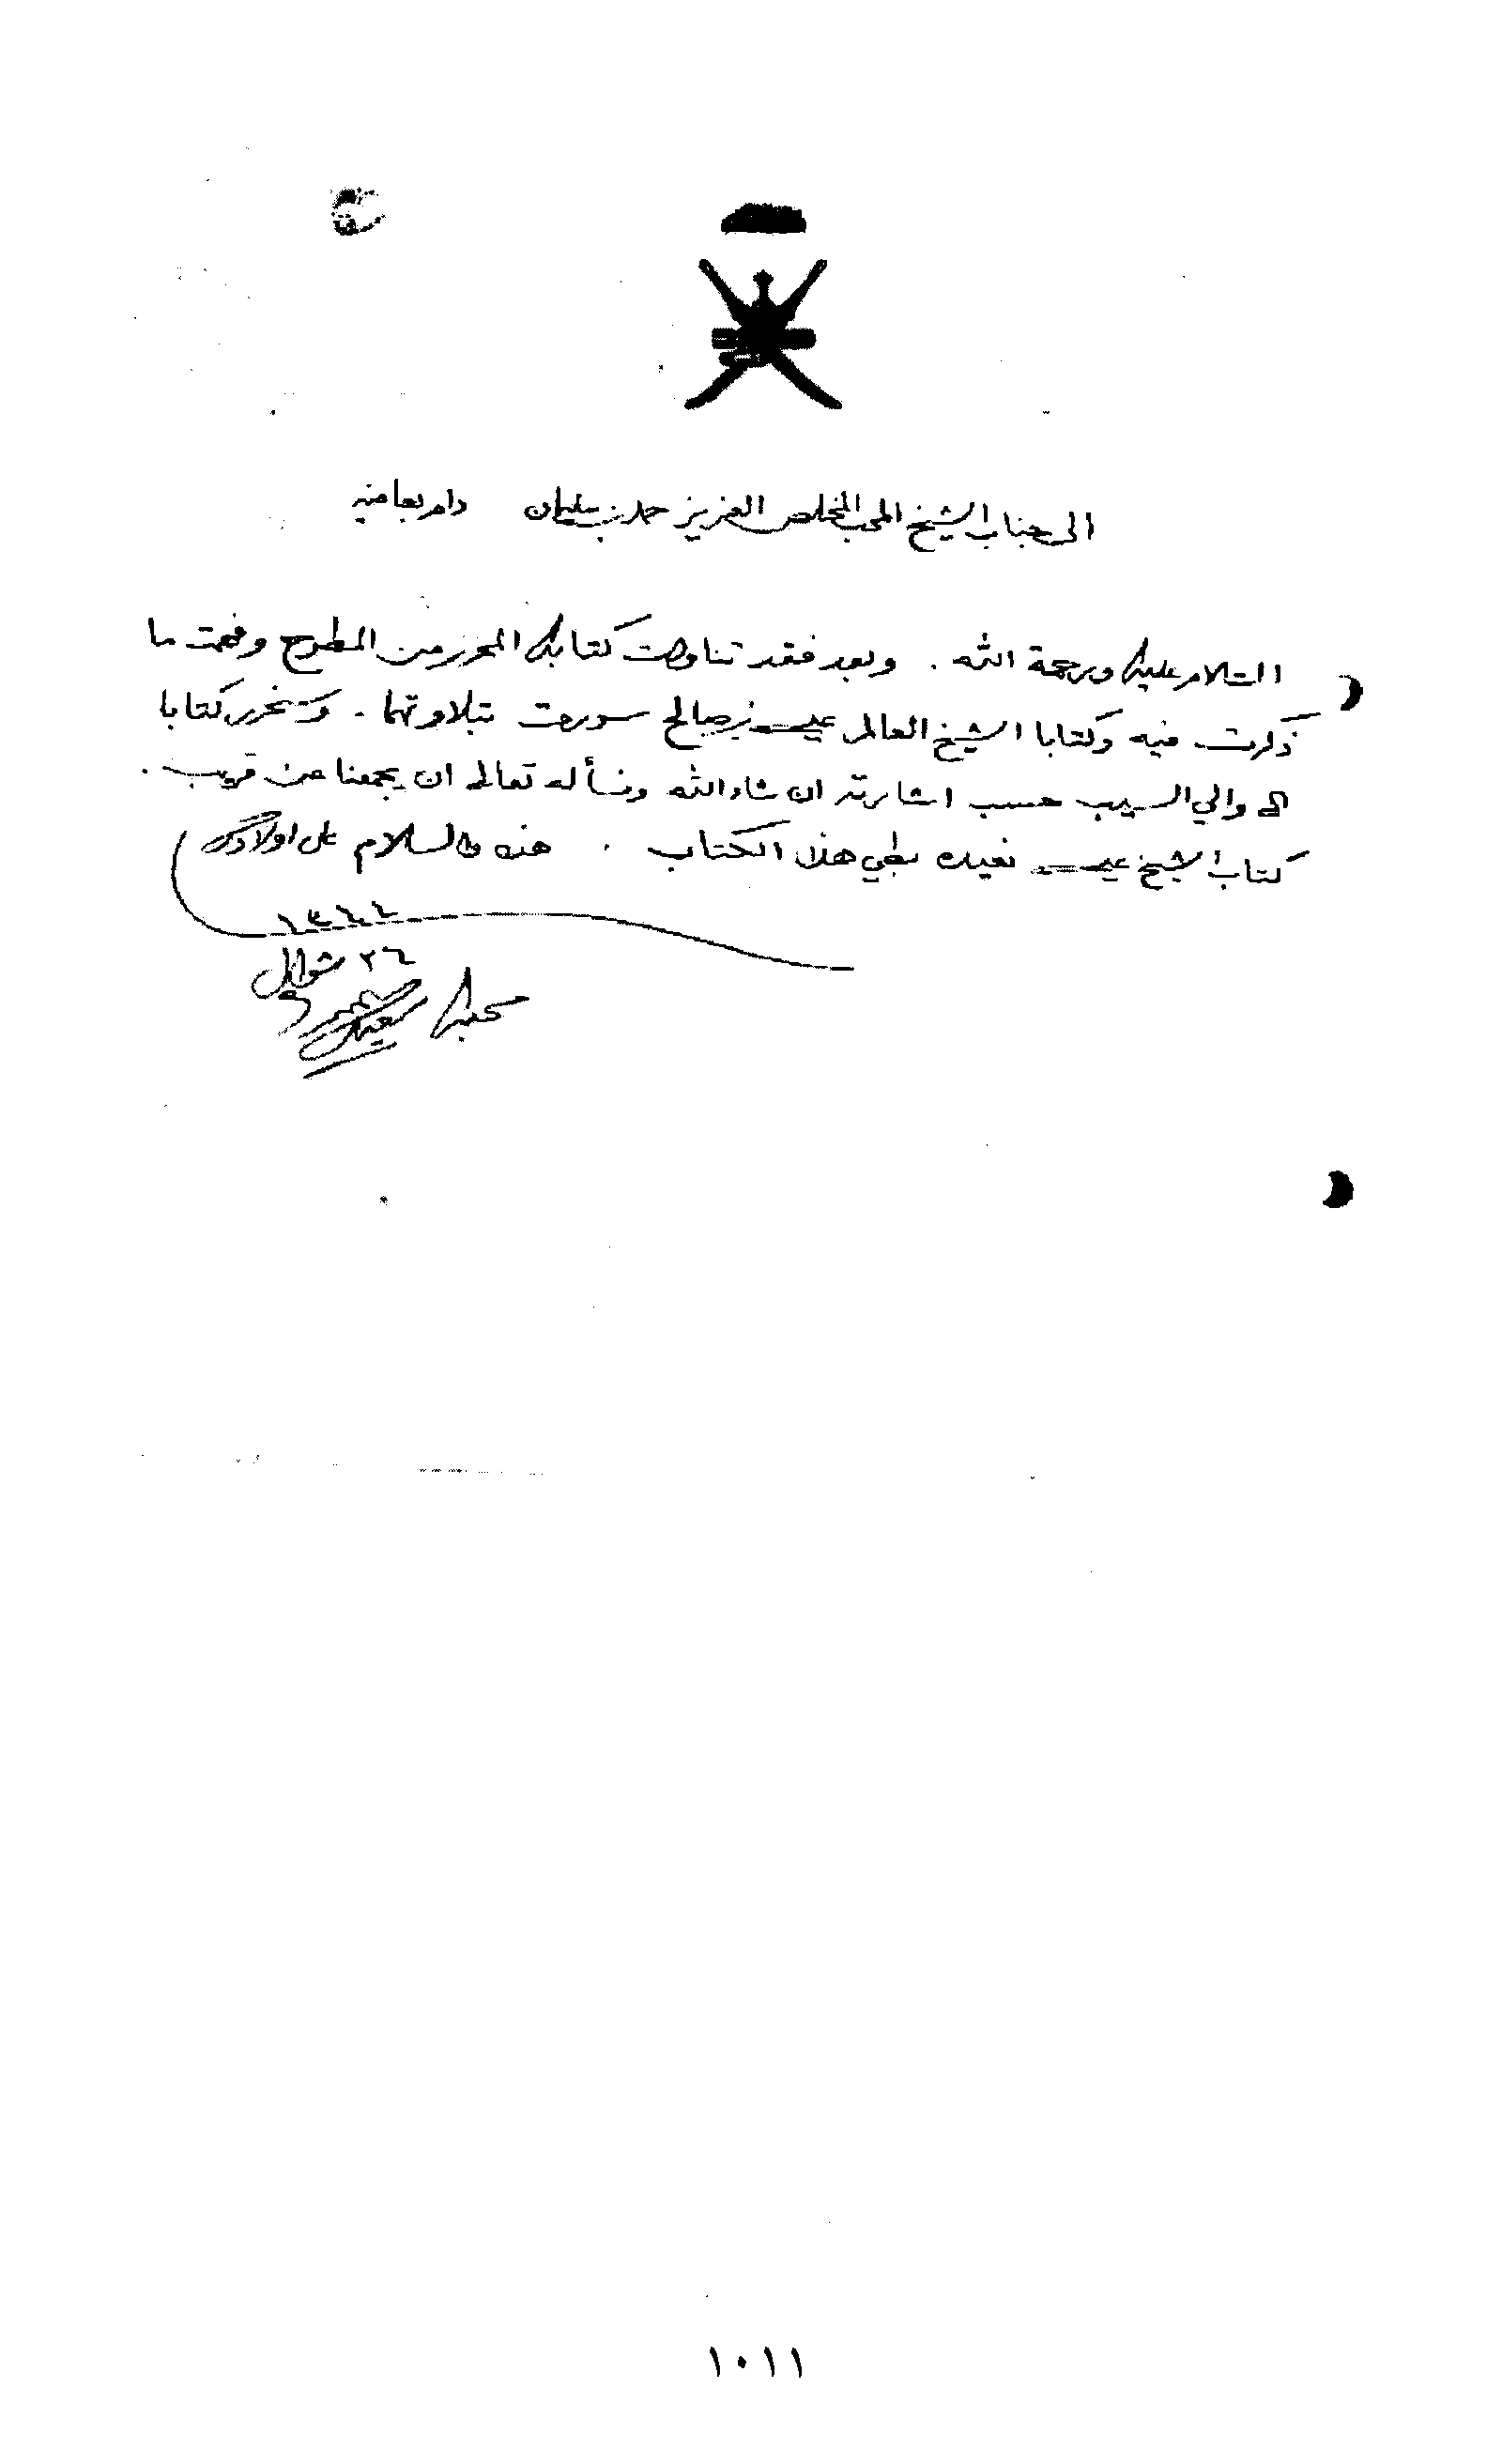 الى جناب الشيخ المحب المخلص العزيز حمد بن سليمان دام بعافيه
السلام عليك ورحمة الله . وبعد فقد تناولت كتابك المحرر من المطرح وفهمت ما
ذكرت فيه وكتابا الشيخ العالم عيسى بن صالح سررت بتلاوتهما . وسنحرر كتابا
الى والي السيب حسب اشارته ان شاء الله ونسأله تعالى ان يجمعنا عن قريب .
كتاب الشيخ عيسى نعيده بطي هذا الكتاب . هذه والسلام على اولادك
٢٦ شوال
محبك سعيد
١٠١١